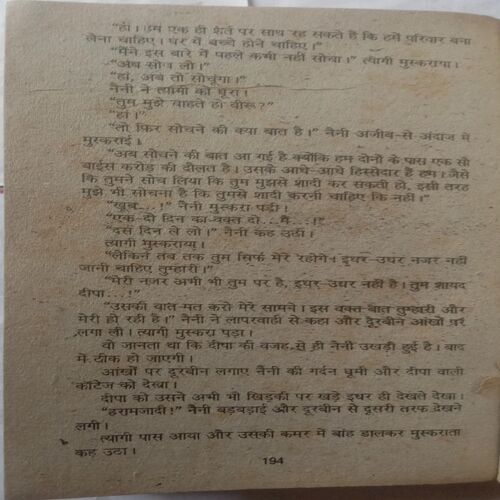 "हां। हम एक ही शर्त पर साथ रह सकते हैं कि हमें परिवार बना
लेना चाहिए। घर में बच्चे होने चाहिए।"
"मैंने इस बारे में पहले कभी नहीं सोचा।" त्यागी मुस्कराया।
"अब सोच लो।"
"हां, अब तो सोचूंगा।"
नैनी ने त्यागी को घूरा।
"तुम मुझे चाहते हो वीरू?"
"हां।"
"तो फिर सोचने की क्या बात है।" नैनी अजीब-से अंदाज में
मुस्कराई।
"अब सोचने की बात आ गई है क्योंकि हम दोनों के पास एक सौ
बाईस करोड़ की दौलत है। उसके आधे-आधे हिस्सेदार हैं हम। जैसे
कि तुमने सोच लिया कि तुम मुझसे शादी कर सकती हो, इसी तरह
मुझे भी सोचना है कि तुमसे शादी करनी चाहिए कि नहीं।"
"खूब...!" नैनी मुस्करा पड़ी।
"एक-दो दिन का वक्त दो...मैं...!"
"दस दिन ले लो।" नैनी कह उठी।
त्यागी मुस्कराया।
"लेकिन तब तक तुम सिर्फ मेरे रहोगे। इधर-उधर नजर नहीं
जानी चाहिए तुम्हारी।"
"मेरी नजर अभी भी तुम पर है, इधर-उधर नहीं है। तुम शायद
दीपा...!"
"उसकी बात मत करो मेरे सामने। इस वक्त बात तुम्हारी और
मेरी हो रही है।" नैनी ने लापरवाही से कहा और दूरबीन आंखों पर
लगा ली। त्यागी मुस्करा पड़ा।
वो जानता था कि दीपा की वजह से ही नैनी उखड़ी हुई है। बाद
में ठीक हो जाएगी।
आंखों पर दूरबीन लगाए नैनी की गर्दन घूमी और दीपा वाली
कॉटेज को देखा।
दीपा को उसने अभी भी खिड़की पर खड़े इधर ही देखते देखा।
"हरामजादी!" नैनी बड़बड़ाई और दूरबीन से दूसरी तरफ देखने
लगी।
त्यागी पास आया और उसकी कमर में बांह डालकर मुस्कराता
कह उठा।
194